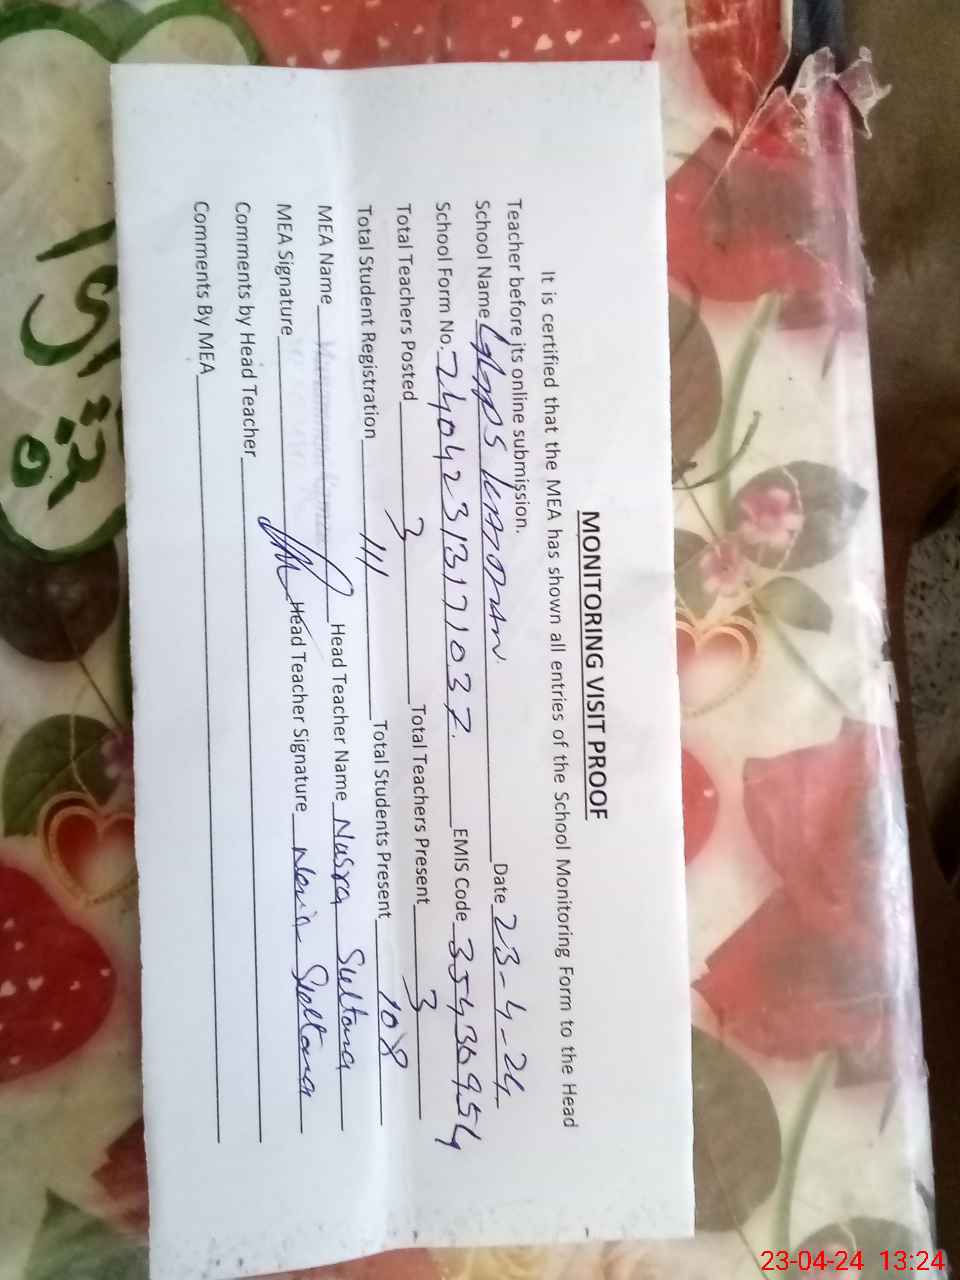 MONITORING VISIT PROOF
It is certified that the MEA has shown all entries of the School Monitoring Form to the Head
Teacher before its online submission.
School Name Date 23-4-24
School Form No. 24042313171037. EMIS Code 35430954
Total Teachers Posted 3 Total Teachers Present 3
Total Student Registration 111 Total Students Present 108
MEA Name Head Teacher Name Nusra Sultana
MEA Signature Head Teacher Signature Sultana
Comments by Head Teacher
Comments By MEA
تذه
23-04-24 13:24